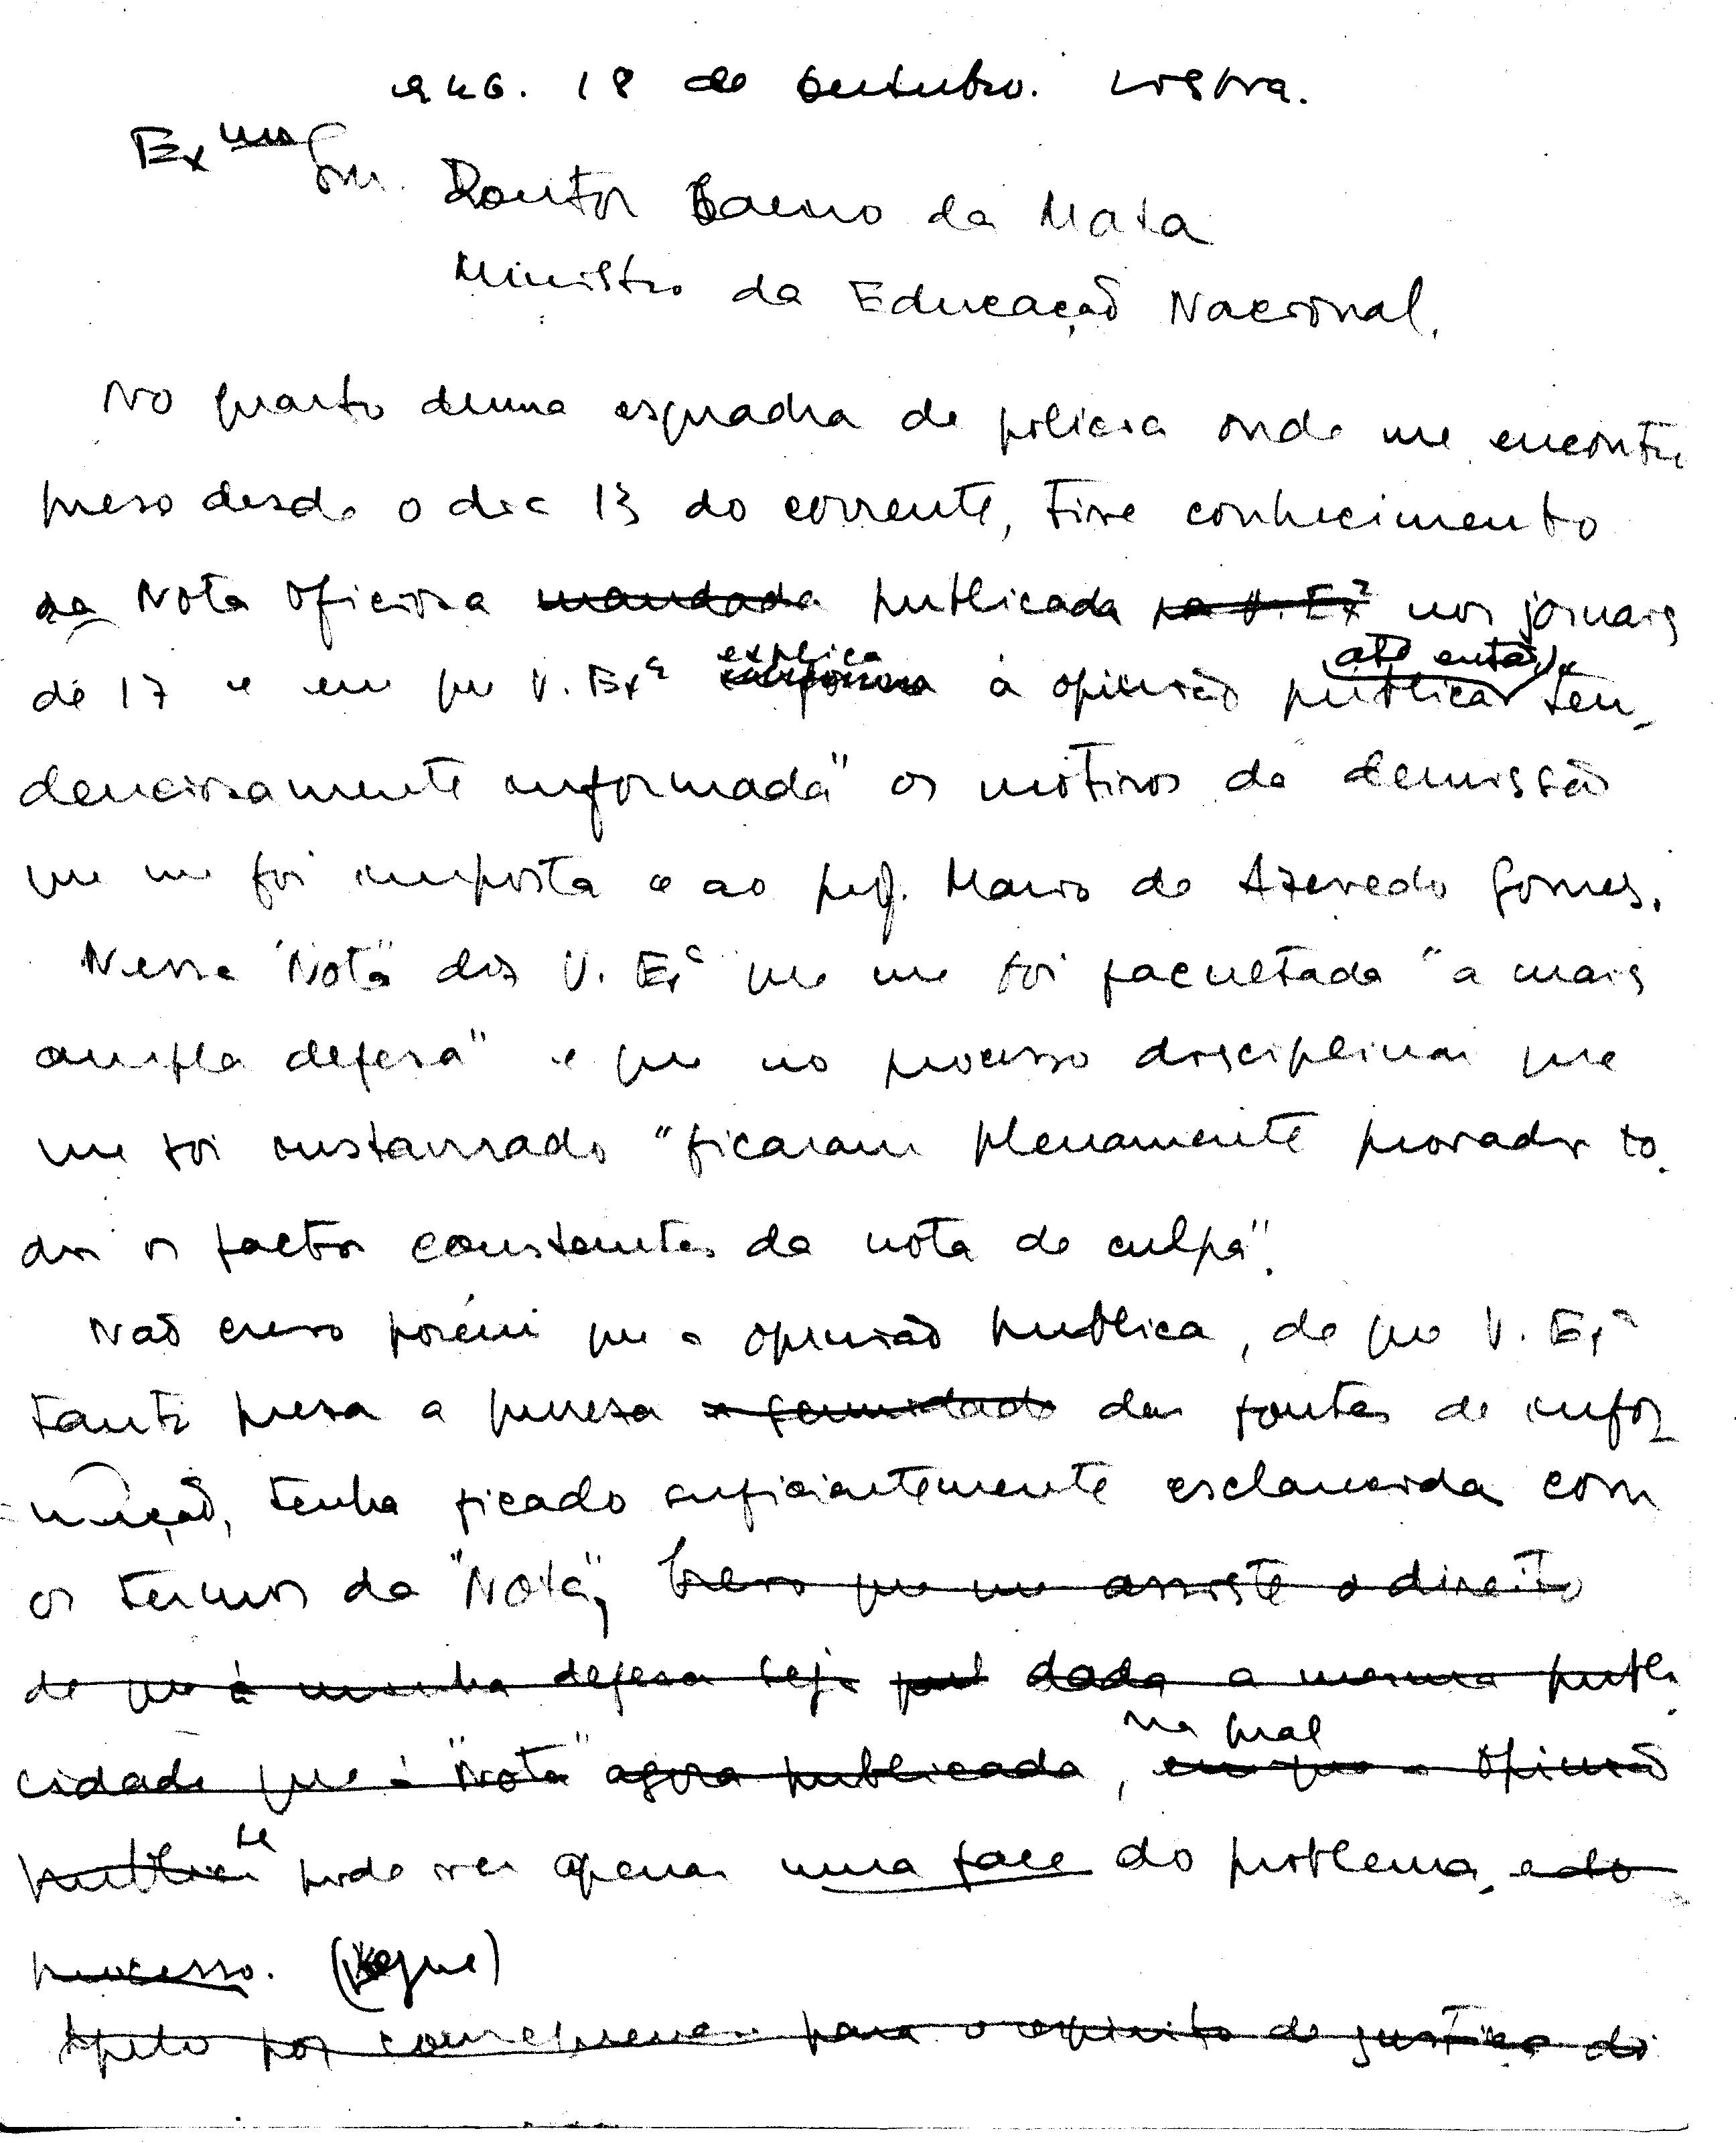 946. 18 de Outubro. Lisboa.
Exmo Snr. Doutor Caeiro da Mata
Ministro da Educação Nacional.
No quarto duma esquadra de policia onde me encontro
preso desde o dia 13 do corrente, tive conhecimento
da Nota Oficiosa mandada publicada por V. Exª nos jornais
de 17 e em que V. Exª explica à opinião pública, "até então ten-
denciosamente informada" os motivos da demissão
que me foi imposta e ao prof. Mario de Azevedo Gomes.
Nessa "Nota" diz V. Exª que me foi facultada "a mais
ampla defesa" e que no processo disciplinar que
me foi instaurado "ficaram plenamente provados to-
dos os factos constantes da nota de culpa".
Não creio porém que a opinião publica, de que V. Exª
tanto presa a puresa das fontes de infor-
mação, tenha ficado suficientemente esclarecida com
os termos da "Nota", Creio que me assiste o direito
de que à minha defesa seja pub dada a mesma publi-
cidade que à "Nota" agora publicada, na qual em que a opinião
publica se pode ver apenas uma face do problema, e do
processo. (segue)
Apelo por consequencia para o espirito de justiça de